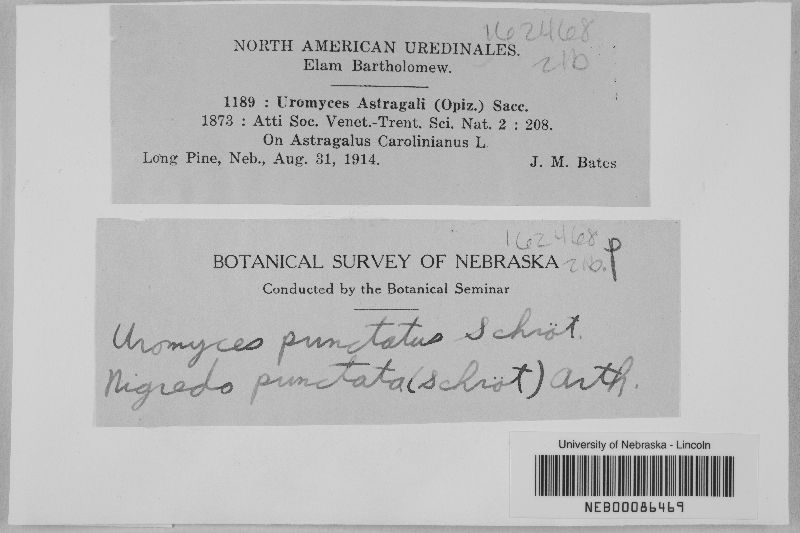 162468
NORTH AMERICAN UREDINALES.
21b
Elam Bartholomew.
1189 : Uromyces Astragali (Opiz.) Sacc.
1873 : Atti Soc. Venet.-Trent. Sci. Nat. 2 : 208.
On Astragalus Carolinianus L
Long Pine, Neb., Aug. 31, 1914. J. M. Bates
162468
BOTANICAL SURVEY OF NEBRASKA 21b. P
Conducted by the Botanical Seminar
Uromyces punctatus Schröt.
Nigredo punctata (Schröt) Arth.
University of Nebraska - Lincoln
NEB00086469